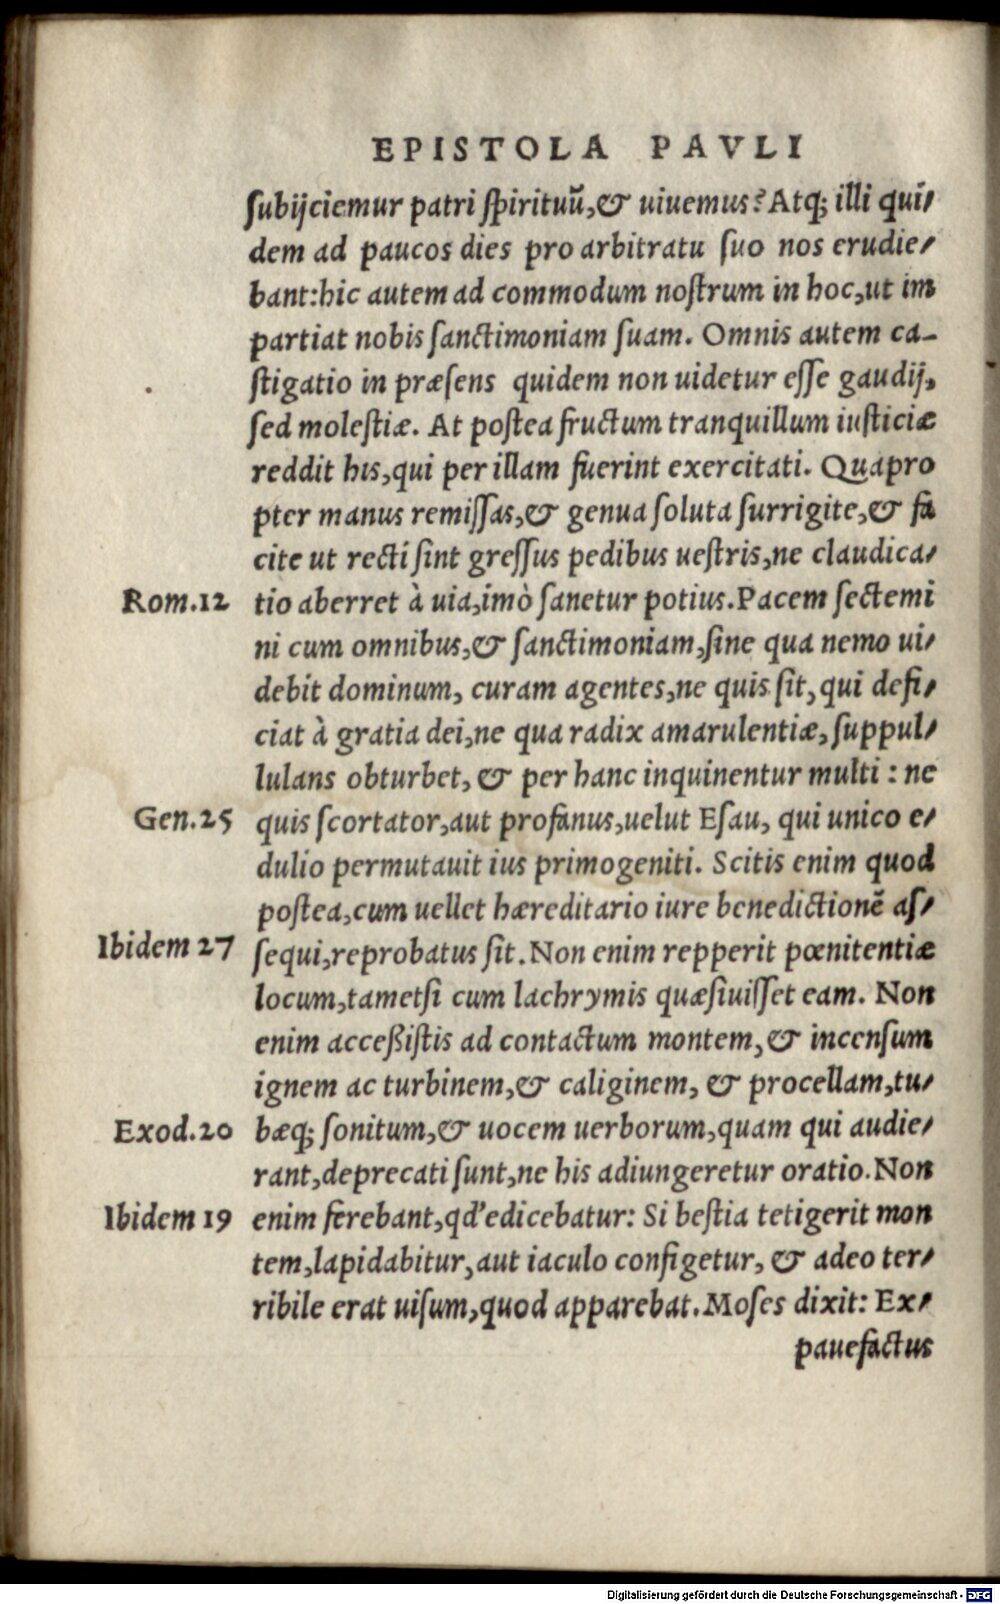 EPISTOLA PAVLI
subijciemur patri spirituū,& uiuemus? Atq; illi qui/
dem ad paucos dies pro arbitratu suo nos erudie/
bant:hic autem ad commodum nostrum in hoc,ut im
partiat nobis sanctimoniam suam. Omnis autem ca-
stigatio in præsens quidem non uidetur esse gaudij,
sed molestiæ. At postea fructum tranquillum iusticiæ
reddit his,qui per illam fuerint exercitati. Quapro
pter manus remissas,& genua soluta surrigite,& fa
cite ut recti sint gressus pedibus uestris,ne claudica/
Rom.12 tio aberret à uia,imò sanetur potius.Pacem sectemi
ni cum omnibus,& sanctimoniam,sine qua nemo ui/
debit dominum, curam agentes,ne quis sit, qui defi/
ciat à gratia dei,ne qua radix amarulentiæ, suppul/
lulans obturbet, & per hanc inquinentur multi : ne
Gen.25 quis scortator,aut profanus,uelut Esau, qui unico e/
dulio permutauit ius primogeniti. Scitis enim quod
postea,cum uellet hæreditario iure benedictionē as/
Ibidem 27 sequi,reprobatus sit. Non enim repperit pœnitentiæ
locum,tametsi cum lachrymis quæsiuisset eam. Non
enim acceßistis ad contactum montem,& incensum
ignem ac turbinem,& caliginem, & procellam,tu/
Exod.20 bæq; sonitum,& uocem uerborum,quam qui audie/
rant,deprecati sunt,ne his adiungeretur oratio. Non
Ibidem 19 enim ferebant,qd'edicebatur: Si bestia tetigerit mon
tem,lapidabitur,aut iaculo configetur, & adeo ter/
ribile erat uisum,quod apparebat. Moses dixit: Ex/
pauefactus
Digitalisierung gefördert durch die Deutsche Forschungsgemeinschaft - DFG